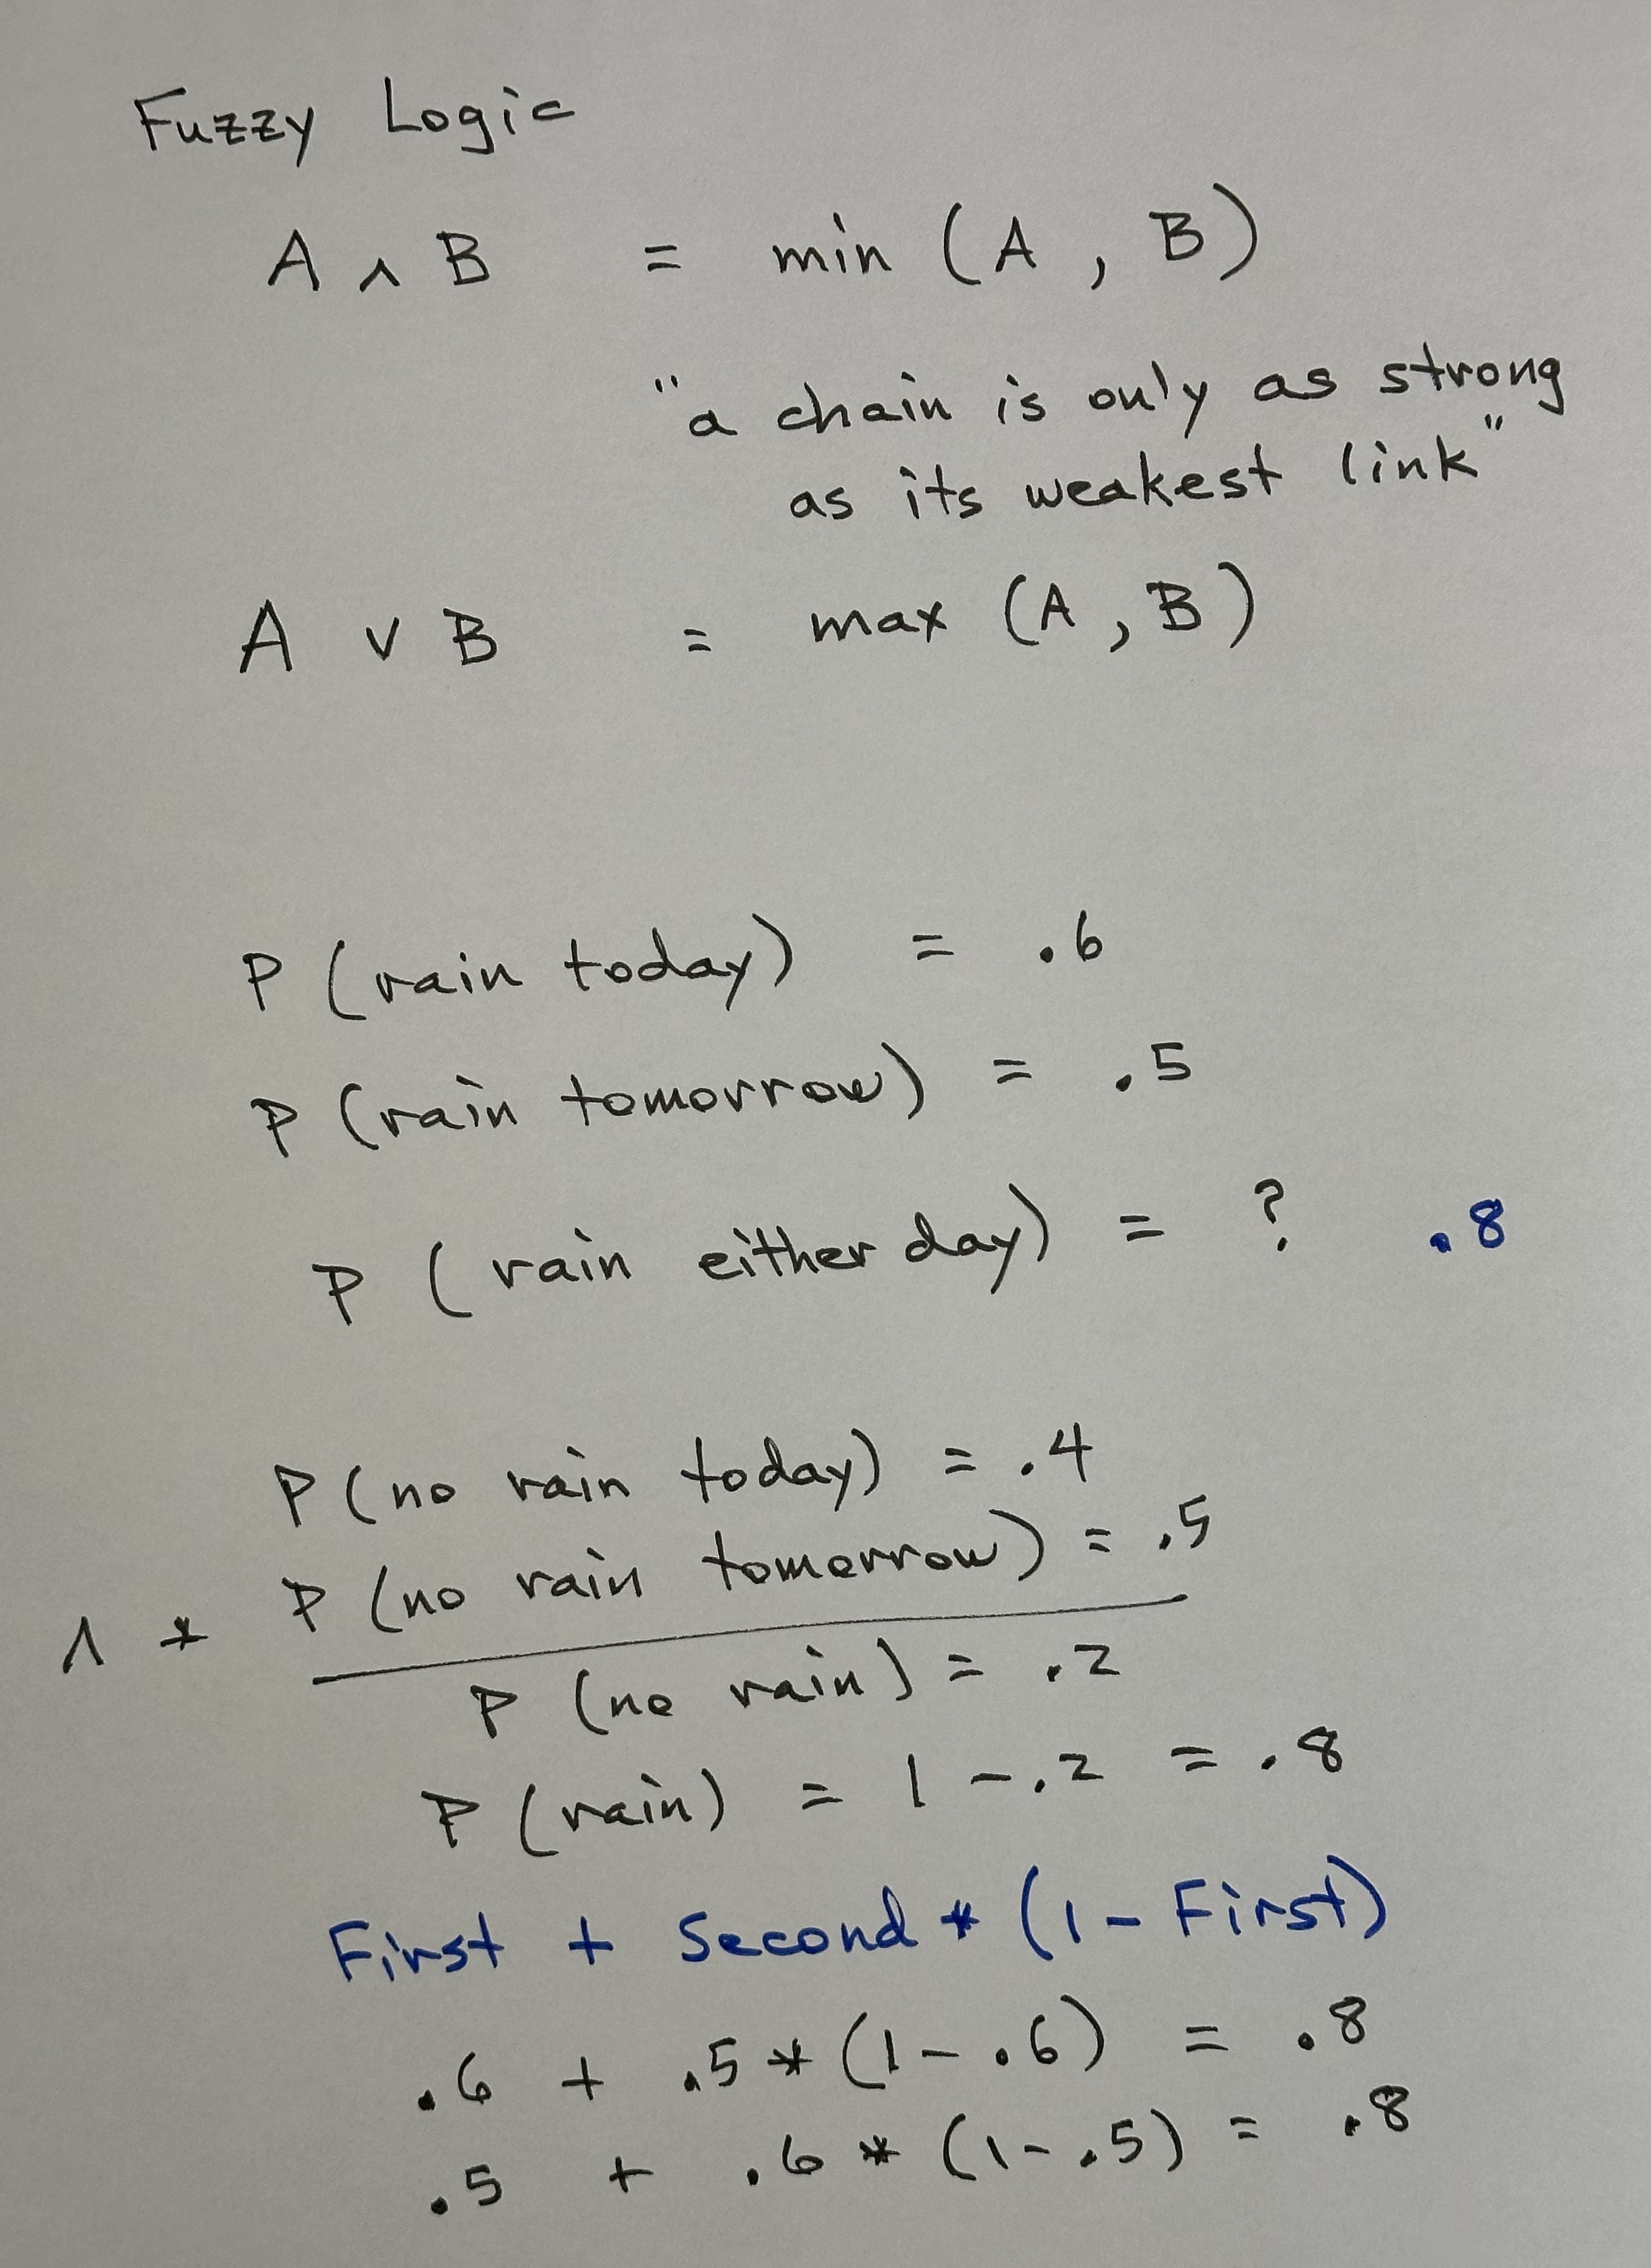 Fuzzy Logic
A ∧ B = min (A , B)
"a chain is only as strong
as its weakest link"
A ∨ B = max (A , B)
P (rain today) = .6
P (rain tomorrow) = .5
P (rain either day) = ? .8
P (no rain today) = .4
∧ * P (no rain tomorrow) = .5
P (no rain) = .2
P (rain) = 1 - .2 = .8
First + Second * (1 - First)
.6 + .5 * (1 - .6) = .8
.5 + .6 * (1 - .5) = .8